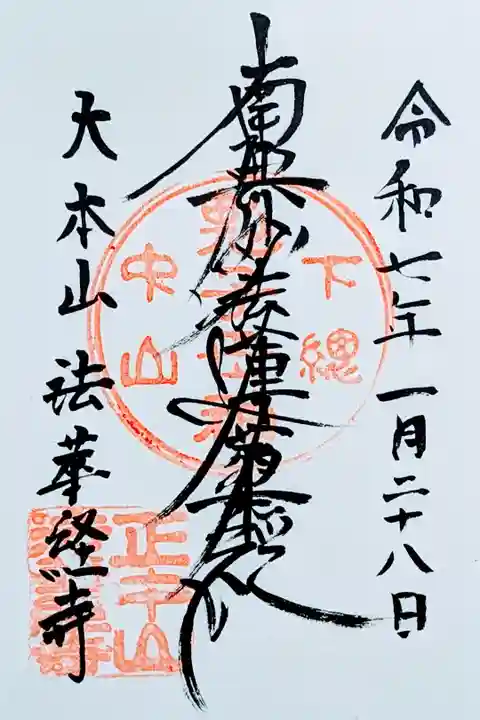 令和七年一月二十八日
南無妙法蓮華経
下總
中山
大本山 法華経寺
正中山
法華経寺